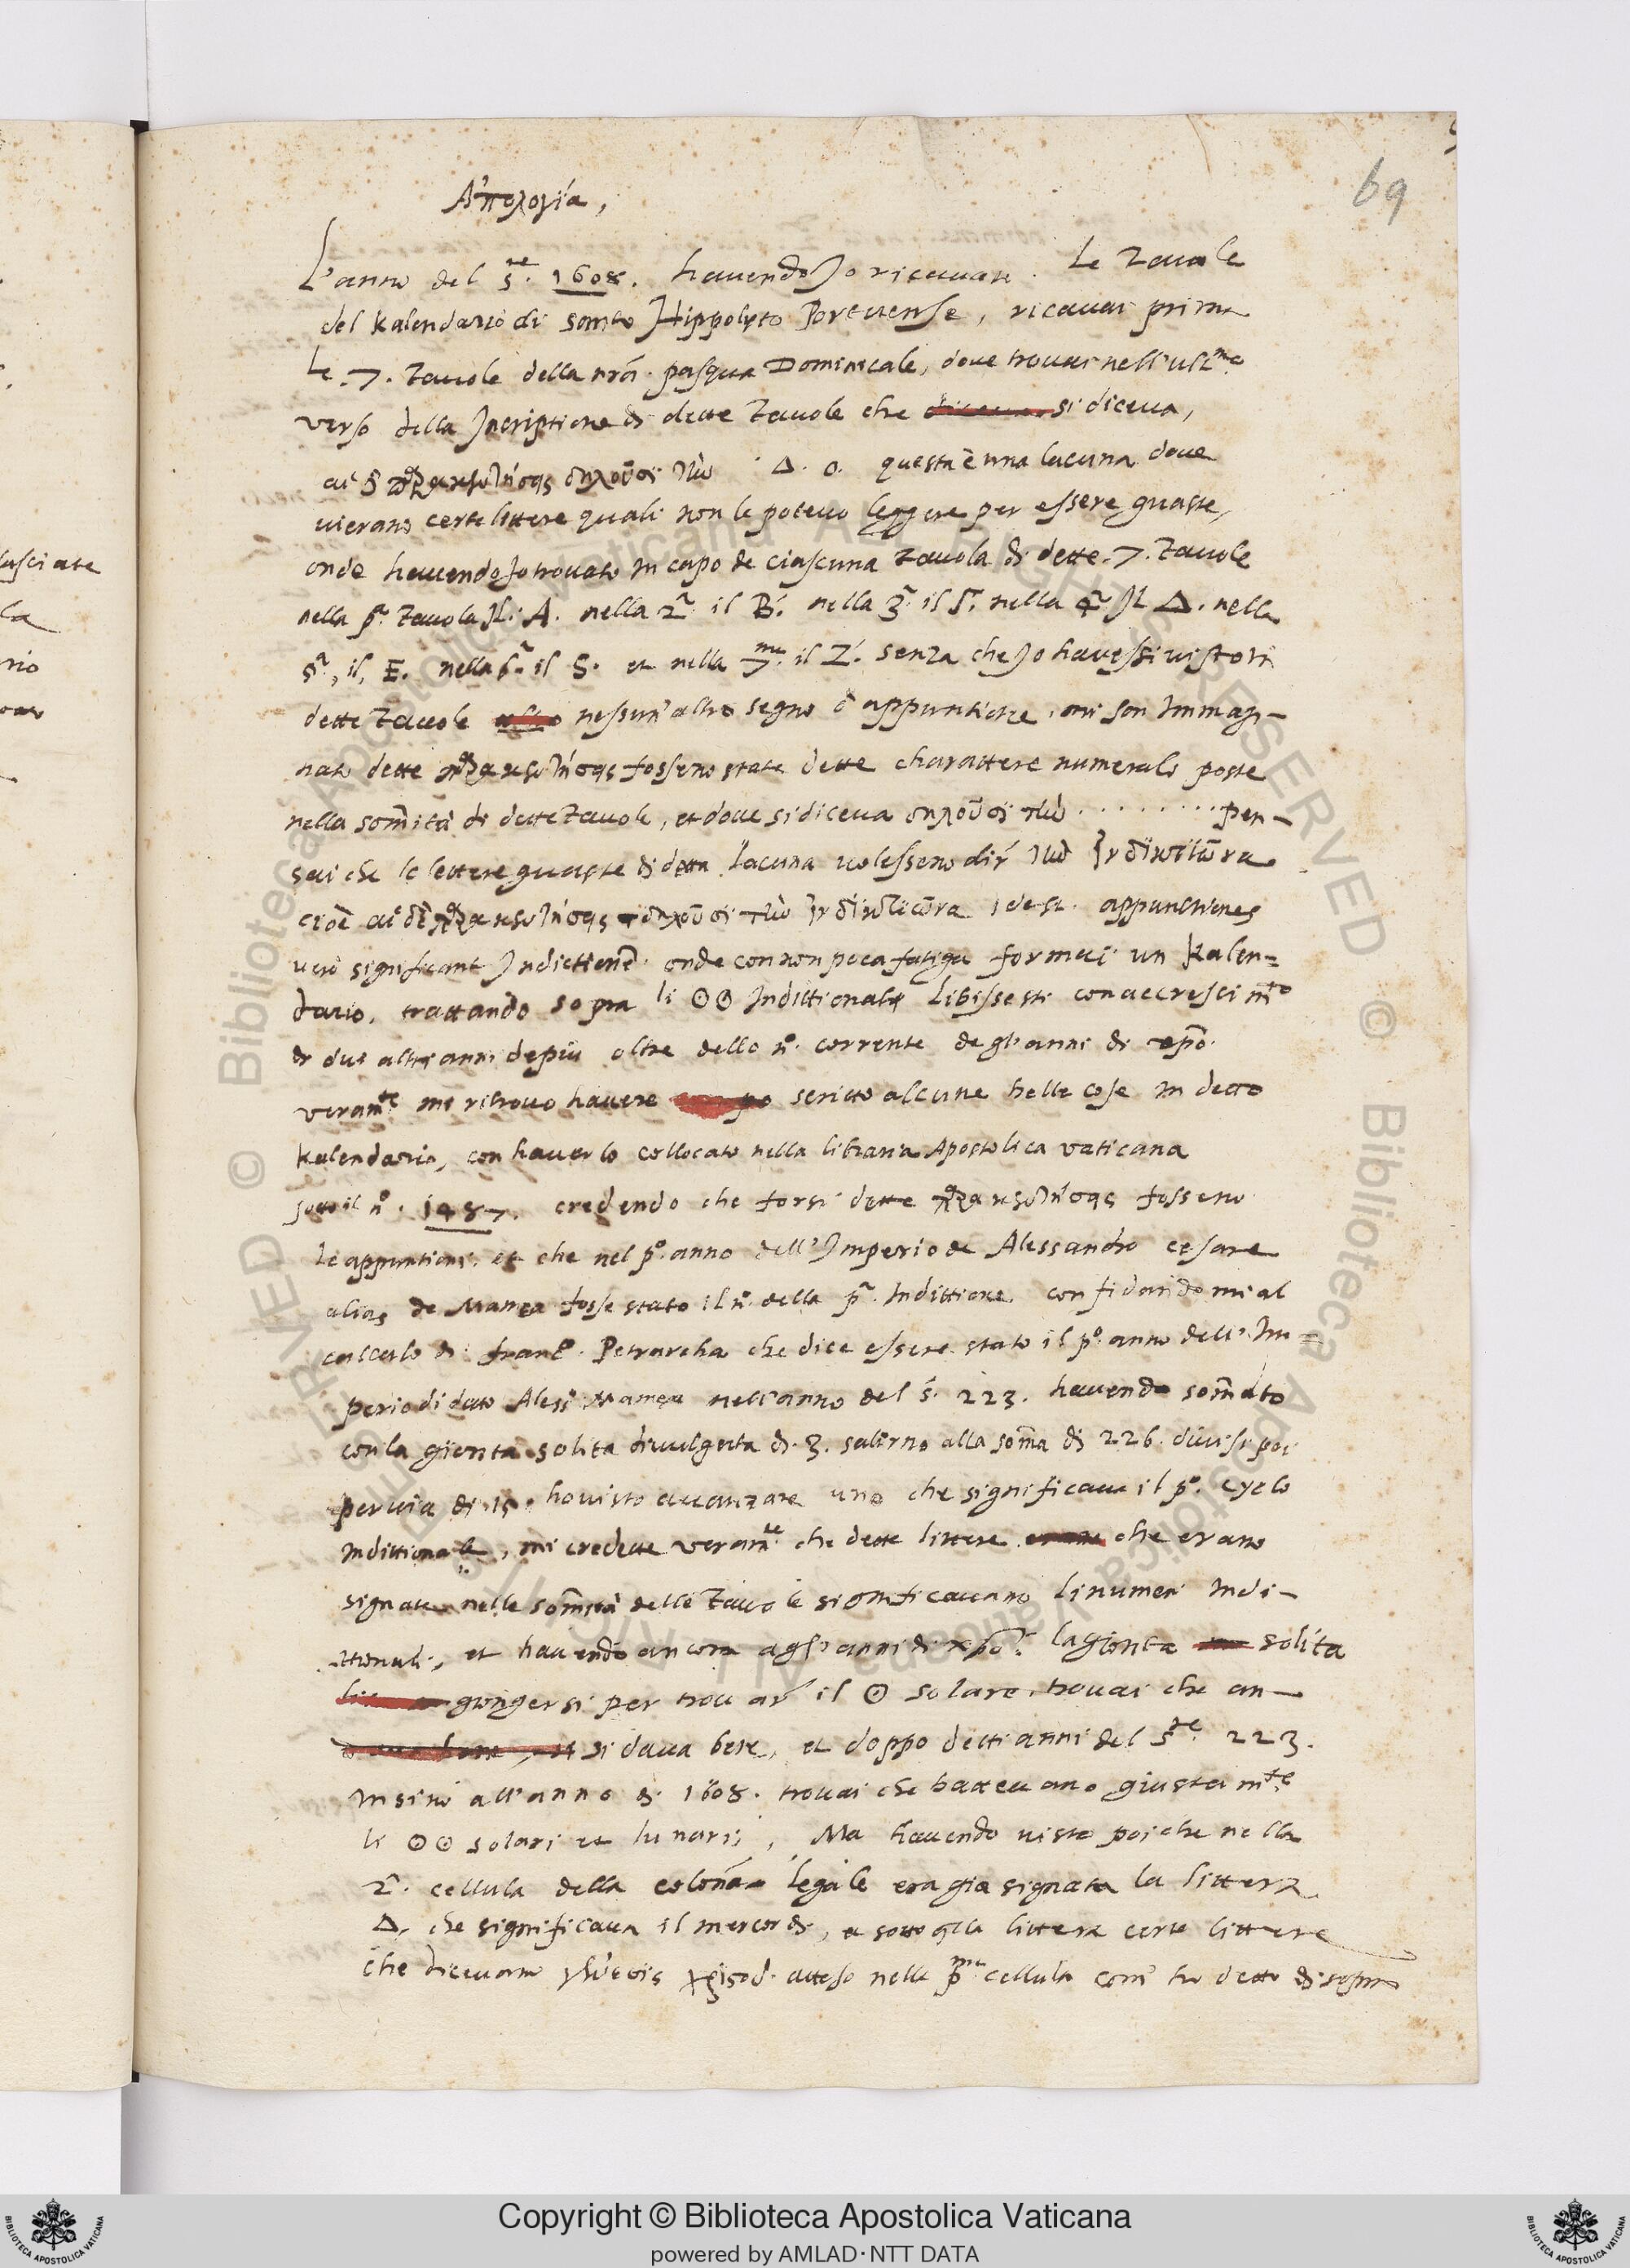 69
Ἀπολογία,
L'anno del S.te 1608. havendo Jo ricavare Le Tavole
del Kalendario di santo Hippolyto Portuense, ricavai prima
Le .7. Tavole della nrā pasqua Dominicale, dove trovai nell'ult.mo
verso della Jncriptione di dette Tavole che si diceva,
αἱ δὲ παρακεντήσεις δηλοῦσι τὴν Δ. ο. questa è una lacuna dove
vierano certe littere quali non le potevo leggere per essere guaste,
onde havendo Jo trovato in capo de ciascuna Tavola di dette .7. Tavole
nella p.a Tavola Jl. A. nella 2.a il B. nella 3.a il Γ. nella 4.a Jl Δ. nella
5.a, il, E. nella 6.a il S. et nella 7.ma il Z. senza che Jo havessi visto in
dette Tavole nessun'altro segno ò appuntione, mi son Immagi-
nato dette παρακεντήσεις fosseno state dette charattere numerali poste
nella som̄ità di dette Tavole, et dove si diceva δηλοῦσι τὴν ........ pen-
sai che le lettere guaste di detta Lacuna volesseno dir' τὴν ἰνδικτιῶνα
cioè αἱ δὲ παρακεντήσεις δηλοῦσι τὴν ἰνδικτιῶνα idest. appunctiones
vero significant Jndictionē. onde con non poca fatiga formai un Kalen=
dario, trattando sopra li ⊙⊙ Indittionali Li bissesti con accrescim.to
di due altri anni depiù oltre dello n.o corrente degl'anni di xp̄o.
veram.te mi ritrovo havere scritto alcune belle cose in detto
Kalendario, con haverlo collocato nella libraria Apostolica vaticana
sotto il n.o 1487. credendo che forsi dette παρακεντήσεις fosseno
le appuntioni, et che nel p.o anno dell'Jmperio de Alessandro cesare
alias de Mamea fosse stato il n.o della p.a Indittione confidandomi al
calculo di franc.o Petrarcha che dice essere stato il p.o anno dell'Im=
perio di detto Aless.o Mamea nell'anno del S. 223. havendo som̄ato
con la gionta solita divulgata di .3. salirno alla som̄a di 226. divisi poi
per via di .15. ho visto avanzare uno che significava il p.o cyclo
Indittionale, mi credette veram.te che dette littere che erano
signate nelle som̄ità delle Tavole significavano Li numeri Indi-
ttionali, et havendo ancora agl'anni di xp̄o la gionta solita
giongersi per trovar' il ⊙ solare, trovai che an-
si dava bene, et doppo detti anni del S.re 223.
insino all'anno di 1608. trovai che battevano giustam.te
li ⊙⊙ solari et lunarii, Ma havendo visto poi che nella
2.a cellula della colōna legale era gia signata la littera
Δ. che significava il mercordi, et sotto q̄lla littera certe littere
che dicevano γένεσις χριστοῦ. atteso nella p.ma cellula com' ho detto di sopra
Copyright © Biblioteca Apostolica Vaticana
powered by AMLAD·NTT DATA